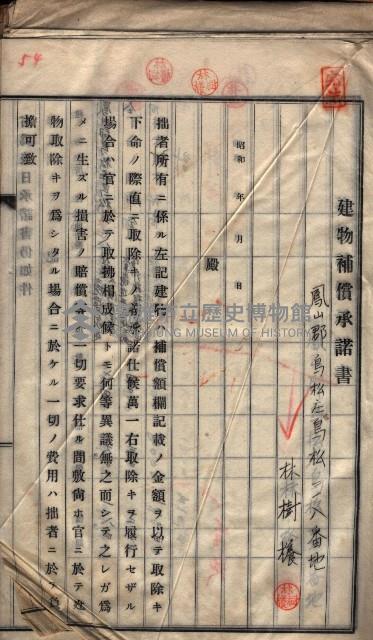 建物補償承諾書
鳳山郡鳥松庄鳥松 番地
林樹
昭和 年 月 日
殿
拙者所有ニ係ル左記建物補償額欄記載ノ金額ヲ以テ取除キ
下命ノ際直ニ取除キノ 承諾仕候萬一右取除キヲ履行セザル
場合ハ官ニ於テ取拂相成候トモ何等異議無之而シテ之レガ爲
メニ生ズル損害ノ賠償 一切要求仕ル間敷尙ホ官ニ於テ建
物取除キヲ爲シタル場合ニ於ケル一切ノ費用ハ拙者ニ於テ負
擔可致 日承諾書仍如件
54
立歷史博物館
MUSEUM OF HISTORY